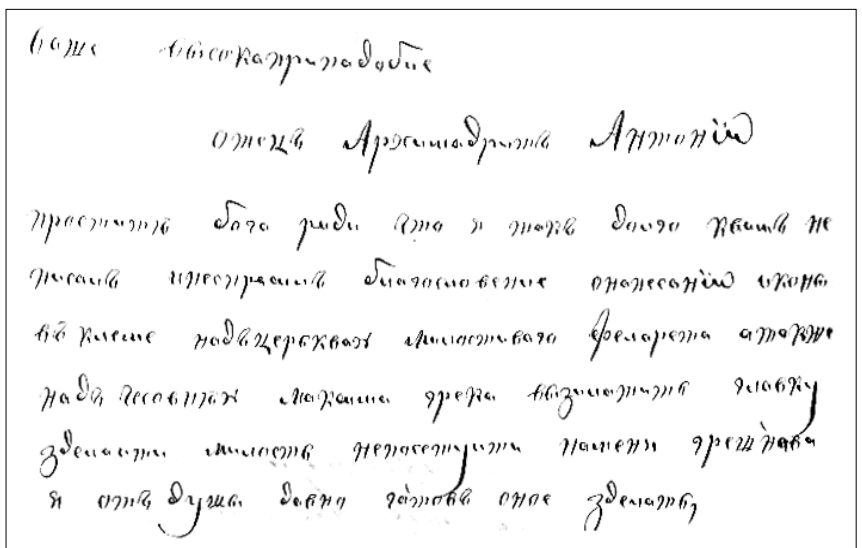 ваше высокаприпадобие
отецъ Архимадритъ Антонӥй
простить бога ради что я такъ долго квамъ не
писалъ инеспрасилъ благословение онапесанӥй иконы
въ киеие надъцерьквою милоставаго Филарета атокже
надъ часовнъю максима грека возималить главку
зделайти милость непосетуити наменя грешнава
я отъ души давно гатовъ оное зделать,